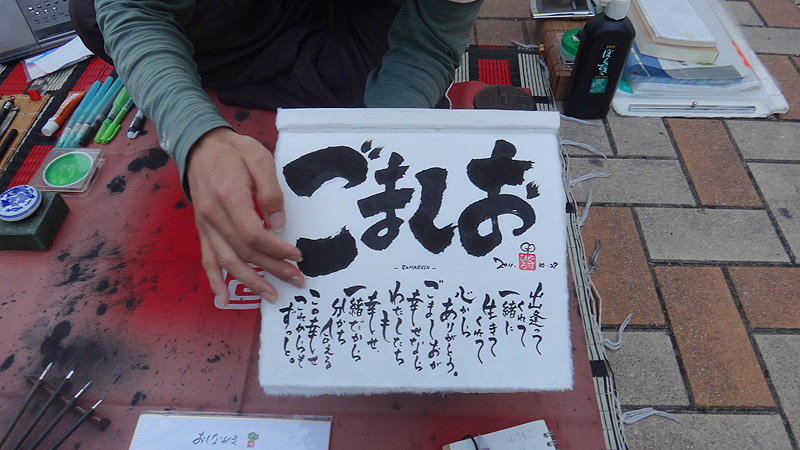 ごましお
- GOMASHIO -
2011.
出逢って
くれて
一緒に
生きて
くれて
心から
ありがとう。
ごましおが
幸せなら
わたしたち
も
幸せ。
一緒だから
分かち
合える
この幸せ
これからも
ずっと。
おしながき
ぼくてき